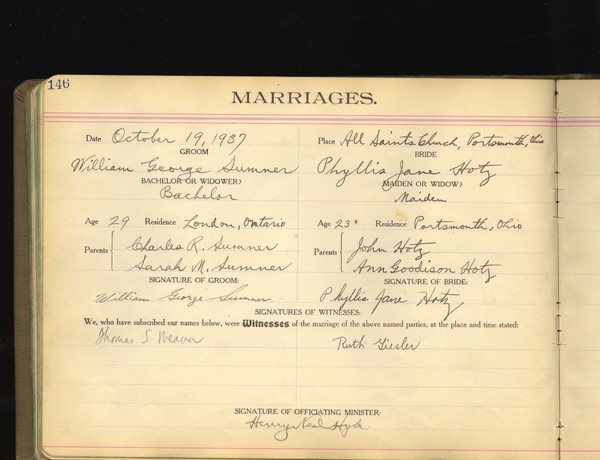 146
MARRIAGES.
Date October 19, 1937 Place All Saints Church, Portsmouth, Ohio
GROOM BRIDE
William George Sumner Phyllis Jane Hotz
BACHELOR OR WIDOWER? MAIDEN OR WIDOW?
Bachelor Maiden
Age 29 Residence London, Ontario Age 23 Residence Portsmouth, Ohio
Parents Charles R. Sumner Parents John Hotz
Sarah M. Sumner Ann Goodison Hotz
SIGNATURE OF GROOM: SIGNATURE OF BRIDE:
William George Sumner Phyllis Jane Hotz
SIGNATURES OF WITNESSES:
We, who have subscribed our names below, were Witnesses of the marriage of the above named parties, at the place and time stated:
Thomas S Weaver Ruth Giesler
SIGNATURE OF OFFICIATING MINISTER:
Henry Neal Hyde